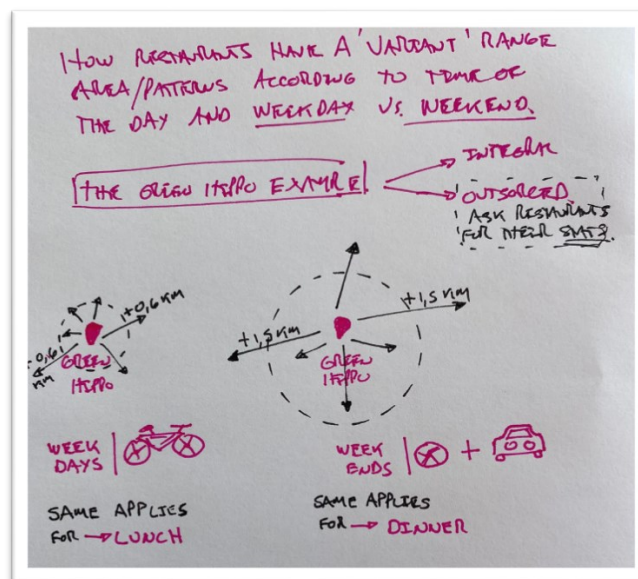 HOW RESTAURANTS HAVE A 'VARIANT' RANGE
AREA/PATTERNS ACCORDING TO TIME OF
THE DAY AND WEEKDAY VS. WEEKEND.
THE GREEN HIPPO EXAMPLE
INTEGRAL
OUTSORCED.
ASK RESTAURANTS
FOR THEIR STATS.
+0,6 KM
+0,6
KM
GREEN
HIPPO
+1,5 KM
+1,5 KM
GREEN
HIPPO
WEEK
DAYS
WEEK
ENDS
+
SAME APPLIES
FOR → LUNCH
SAME APPLIES
FOR → DINNER